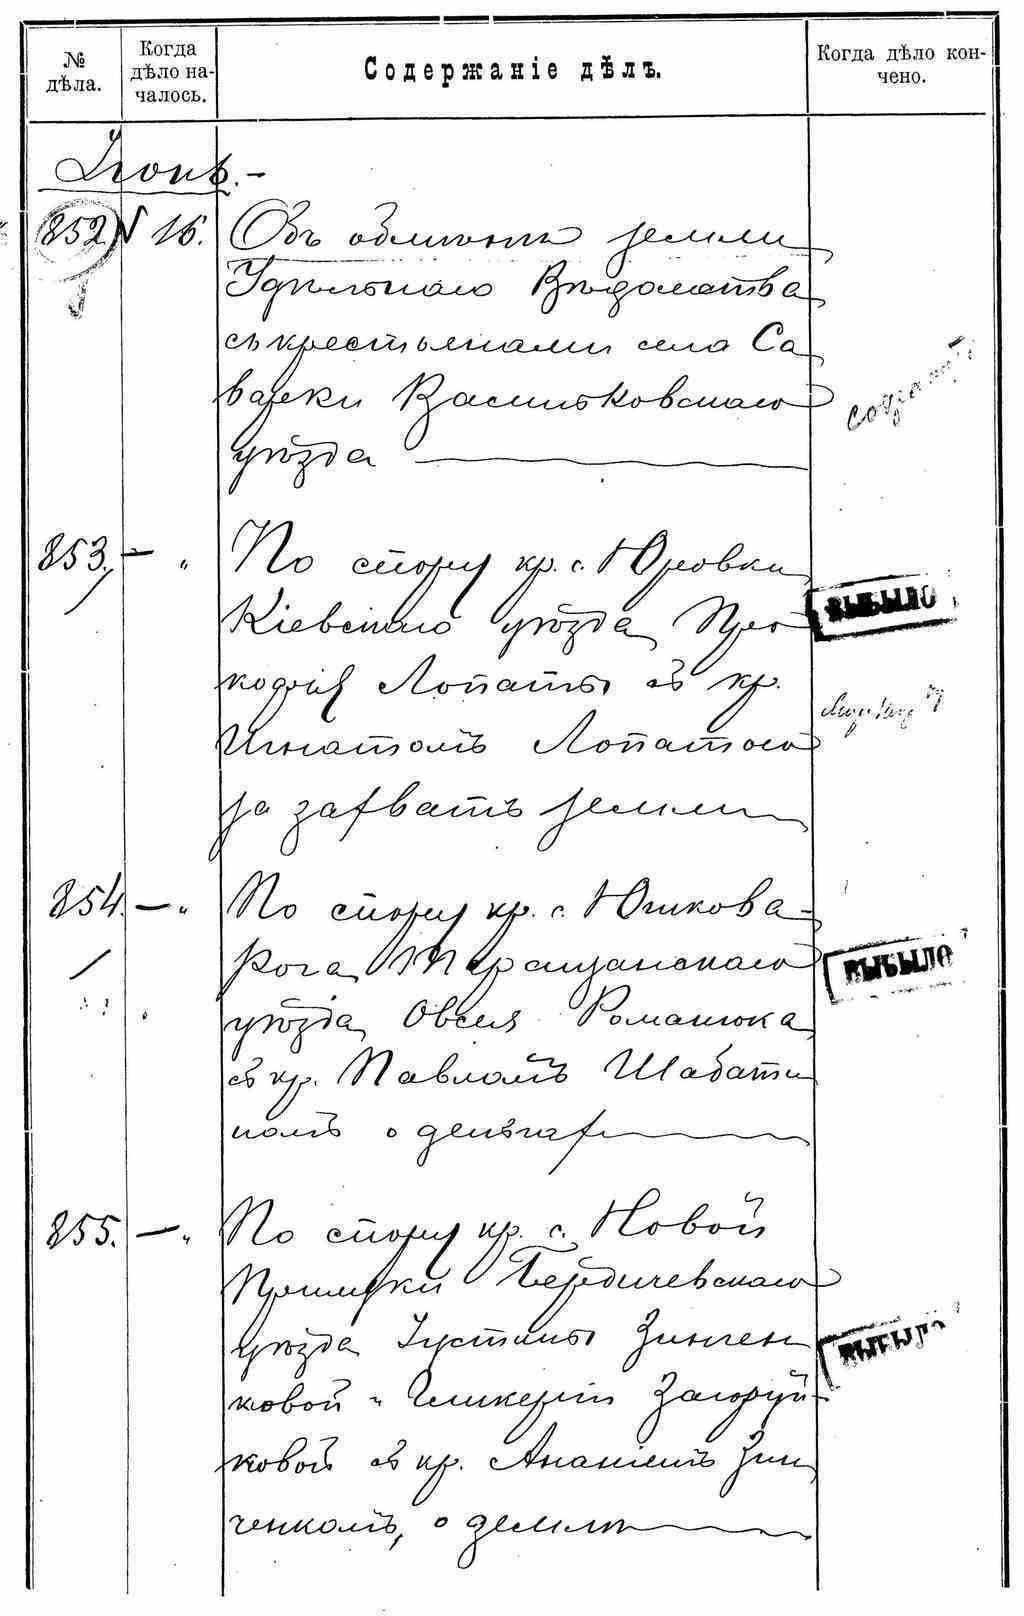 № дѣла.
Когда дѣло началось.
Содержаніе дѣлъ.
Когда дѣло кончено.
Іюнь.-
852 16. Объ обмѣнѣ земли
Удѣльнаго Вѣдомства
съ крестьянами села Са
варки Васильковскаго
уѣзда
853. — „ По спору кр. с. Юровки
Кіевскаго уѣзда Про
кофія Лопаты съ кр.
Игнатомъ Лопатою
за захватъ земли
ВЫБЫЛО
854. — „ По спору кр. с. Юшкова-
Рога Таращанскаго
уѣзда Овсея Романюка
съ кр. Павломъ Шабати
номъ о деньгах
ВЫБЫЛО
855. — „ По спору кр. с. Новой
Прилуки Бердичевскаго
уѣзда Іустины Зинчен
ковой и Гликеріи Загоруй-
ковой съ кр. Ананіемъ Зин
ченкомъ, о землѣ
ВЫБЫЛО